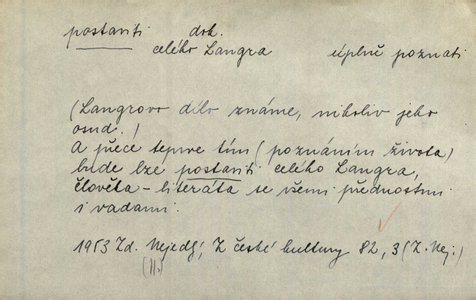 postaviti dok.
celého Langra úplně poznati
(Langrovo dílo známe, nikoliv jeho
osud.)
A přece teprve tím (poznáním života)
bude lze postaviti celého Langra,
člověka - literáta se všemi přednostmi
i vadami.
1953 Zd. Nejedlý, Z české kultury 82, 3 (Z. Nej.)